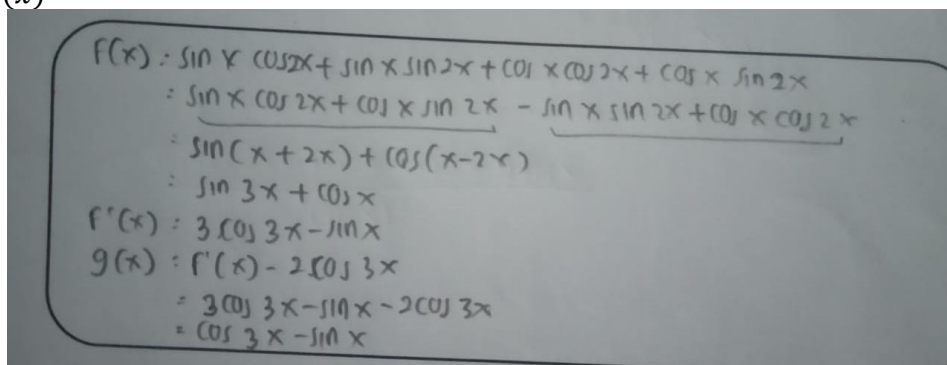 (x)
F(x) : sin x cos2x + sin x sin 2x + cos x cos 2x + cos x sin 2x
: sin x cos 2x + cos x sin 2x - sin x sin 2x + cos x cos 2x
: sin(x + 2x) + cos(x-2x)
: sin 3x + cos x
f'(x) : 3 cos 3x - sin x
g(x) : f'(x) - 2 cos 3x
= 3 cos 3x - sin x - 2 cos 3x
= cos 3x - sin x